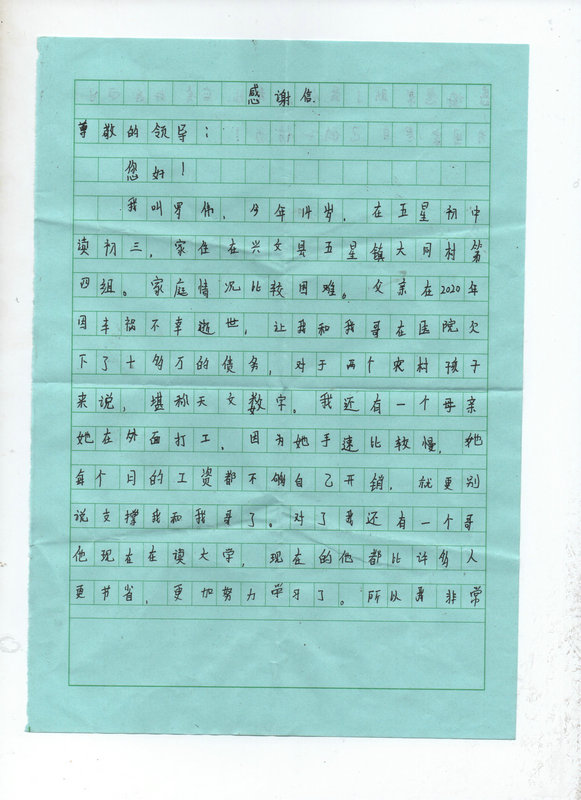 感谢信
尊敬的领导：
您好！
我叫罗伟，今年14岁，在五星初中
读初三，家住在兴文县五星镇大同村第
四组。家庭情况比较困难。父亲在2020年
因车祸不幸逝世，让我和我哥在医院欠
下了十多万的债务，对于两个农村孩子
来说，堪称天文数字。我还有一个母亲
她在外面打工，因为她手速比较慢，她
每个月的工资都不够自己开销，就更别
说支撑我和我哥了。对了我还有一个哥
他现在在读大学，现在的他都比许多人
更节省，更加努力学习了。所以我非常